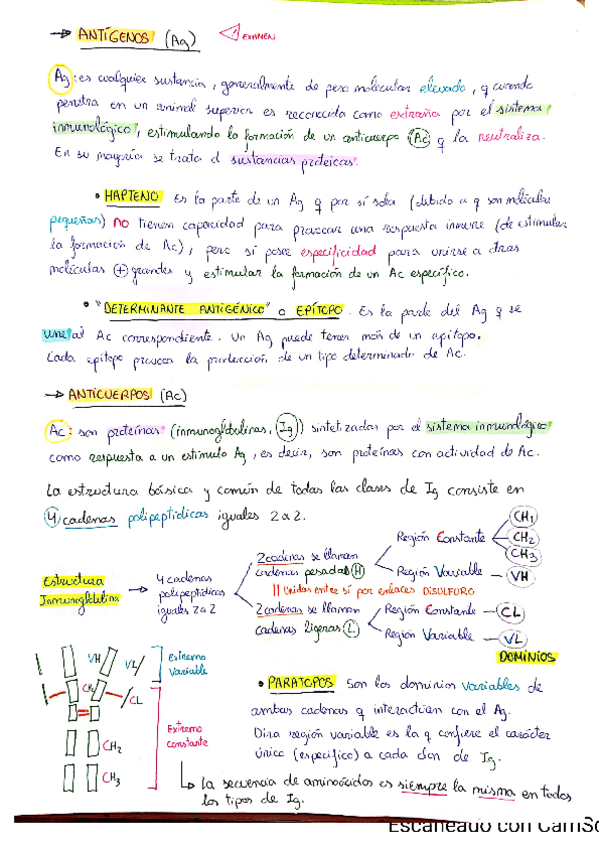 → ANTÍGENOS (Ag) EXAMEN
Ag: es cualquier sustancia, generalmente de peso molecular elevado, q cuando
penetra en un animal superior es reconocida como extraña por el sistema
inmunológico, estimulando la formación de un anticuerpo (Ac) q la neutraliza.
En su mayoría se trata d sustancias proteicas.
• HAPTENO Es la parte de un Ag q por sí sola (debido a q son moléculas
pequeñas) NO tienen capacidad para provocar una respuesta inmune (de estimular
la formación de Ac), pero sí posee especificidad para unirse a otras
moléculas + grandes y estimular la formación de un Ac específico.
• "DETERMINANTE ANTIGÉNICO" o EPÍTOPO. Es la parte del Ag q se
une al Ac correspondiente. Un Ag puede tener más de un epítopo.
Cada epítopo provoca la producción de un tipo determinado de Ac.
→ ANTICUERPOS (Ac)
Ac: son proteínas (inmunoglobulinas, Ig) sintetizadas por el sistema inmunológico
como respuesta a un estímulo Ag, es decir, son proteínas con actividad de Ac.
La estructura básica y común de todas las clases de Ig consiste en
4 cadenas polipeptídicas iguales 2 a 2.
Estructura
Inmunoglobulina
→ 4 cadenas
polipeptídicas
iguales 2 a 2
2 cadenas se llaman
cadenas pesadas (H)
Región Constante
CH1
CH2
CH3
Región Variable – VH
|| Unidas entre sí por enlaces DISULFURO
2 cadenas se llaman
cadenas ligeras (L)
Región Constante – CL
Región Variable – VL
DOMINIOS
VH
VL
CH1
CL
CH2
CH3
Extremo
Variable
Extremo
constante
• PARATOPOS Son los dominios variables de
ambas cadenas q interactúan con el Ag.
Dicha región variable es la q confiere el carácter
único (específico) a cada clon de Ig.
↳ la secuencia de aminoácidos es siempre la misma en todos
los tipos de Ig.
Escaneado con CamSc